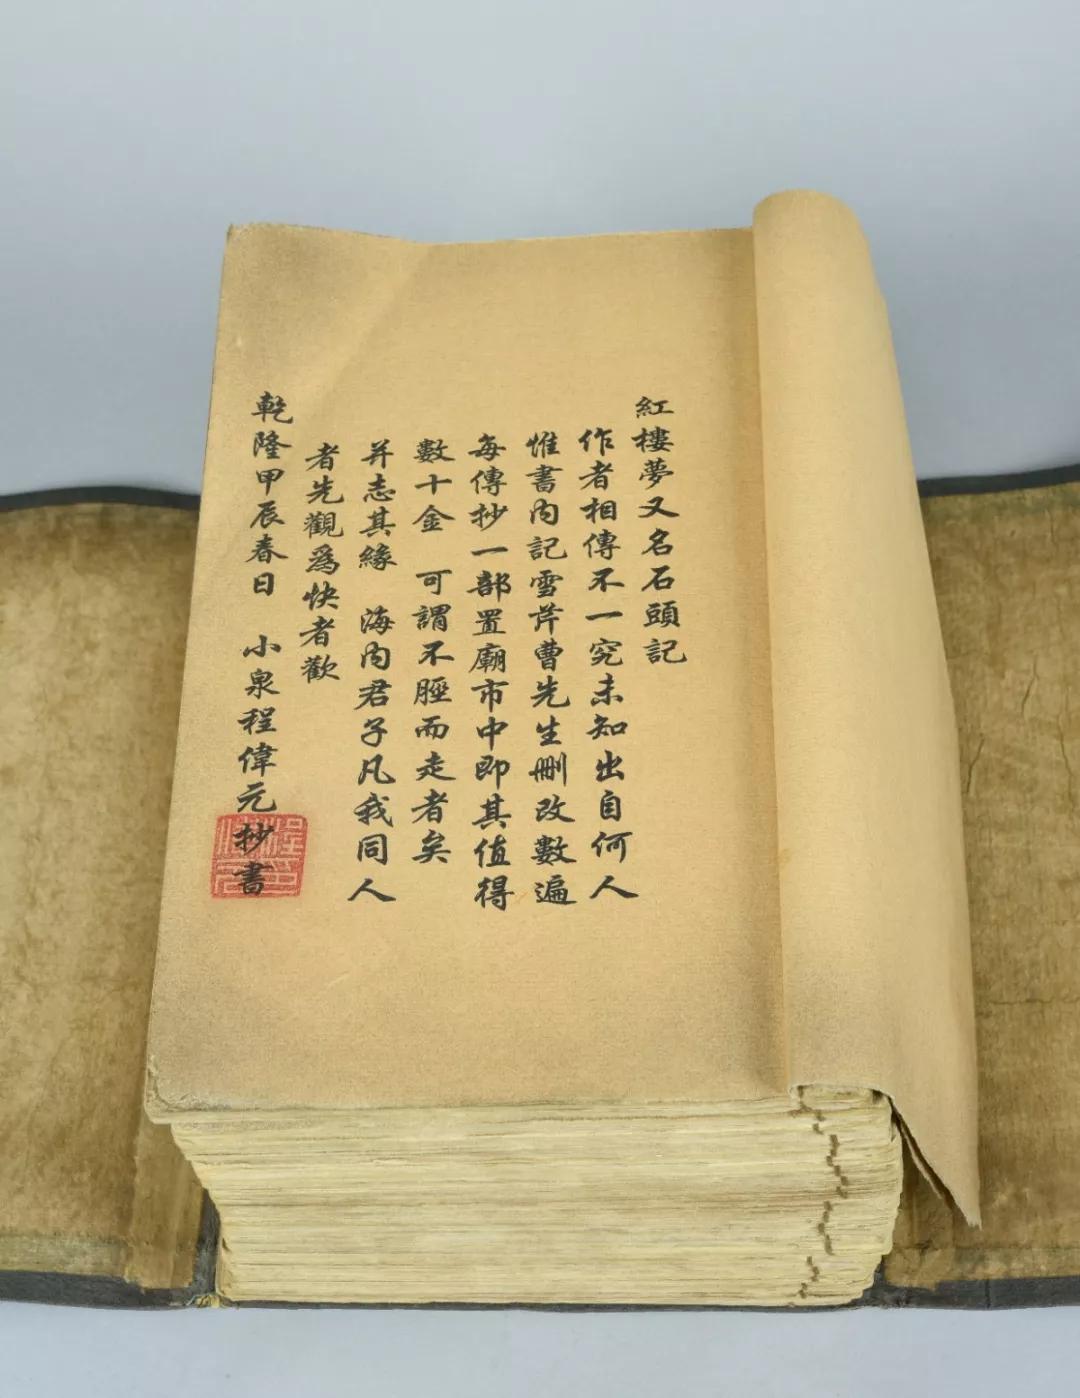 紅樓夢又名石頭記
作者相傳不一究未知出自何人
惟書内記雪芹曹先生刪改數遍
每傳抄一部置廟市中即其值得
數十金 可謂不脛而走者矣
并志其緣 海内君子凡我同人
者先觀爲快者歡
乾隆甲辰春日 小泉程偉元抄書